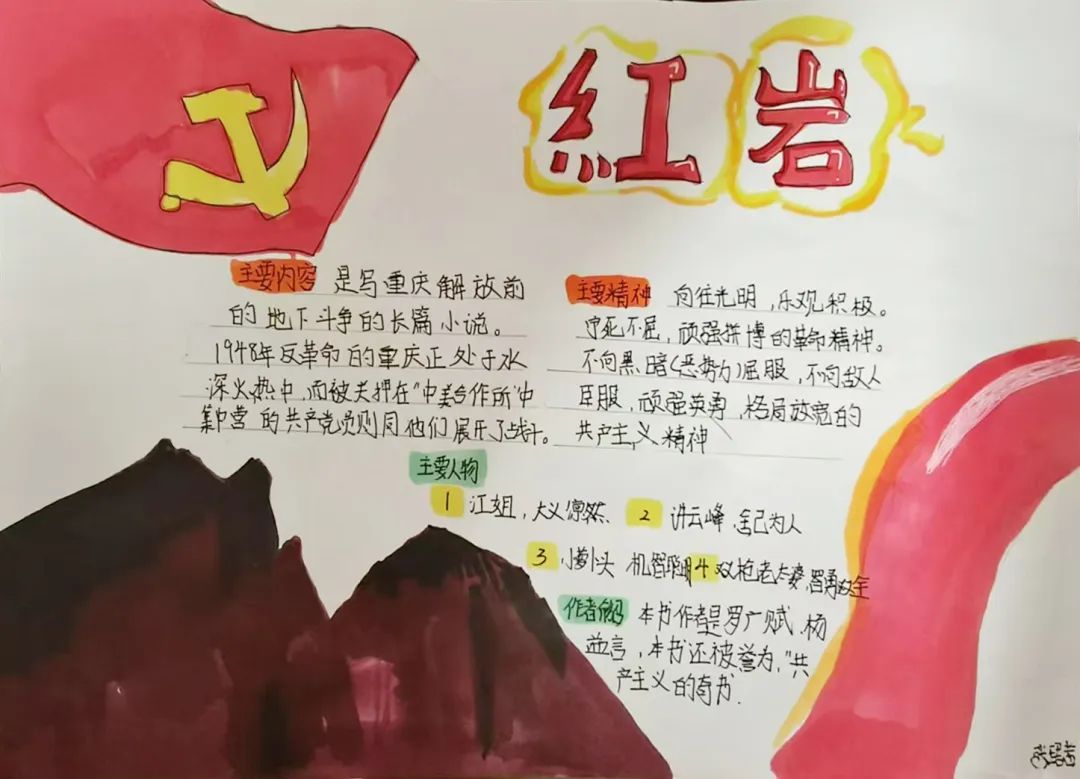 紅岩
主要内容 是写重庆解放前
的地下斗争的长篇小说。
1948年反革命的重庆正处于水
深火热中,而被关押在"中美合作所"中
集中营的共产党员则同他们展开了战斗。
主要精神 向往光明,乐观积极。
宁死不屈,顽强拼博的革命精神。
不向黑暗(恶势力)屈服,不向敌人
臣服,顽强英勇,格局放宽的
共产主义精神
主要人物
1 江姐,大义凛然. 2 许云峰.舍己为人
3 小萝卜头 机智聪明 4 双枪老太婆,智勇双全
作者 本书作者是罗广斌.杨
益言,本书还被誉为,"共
产主义的奇书.